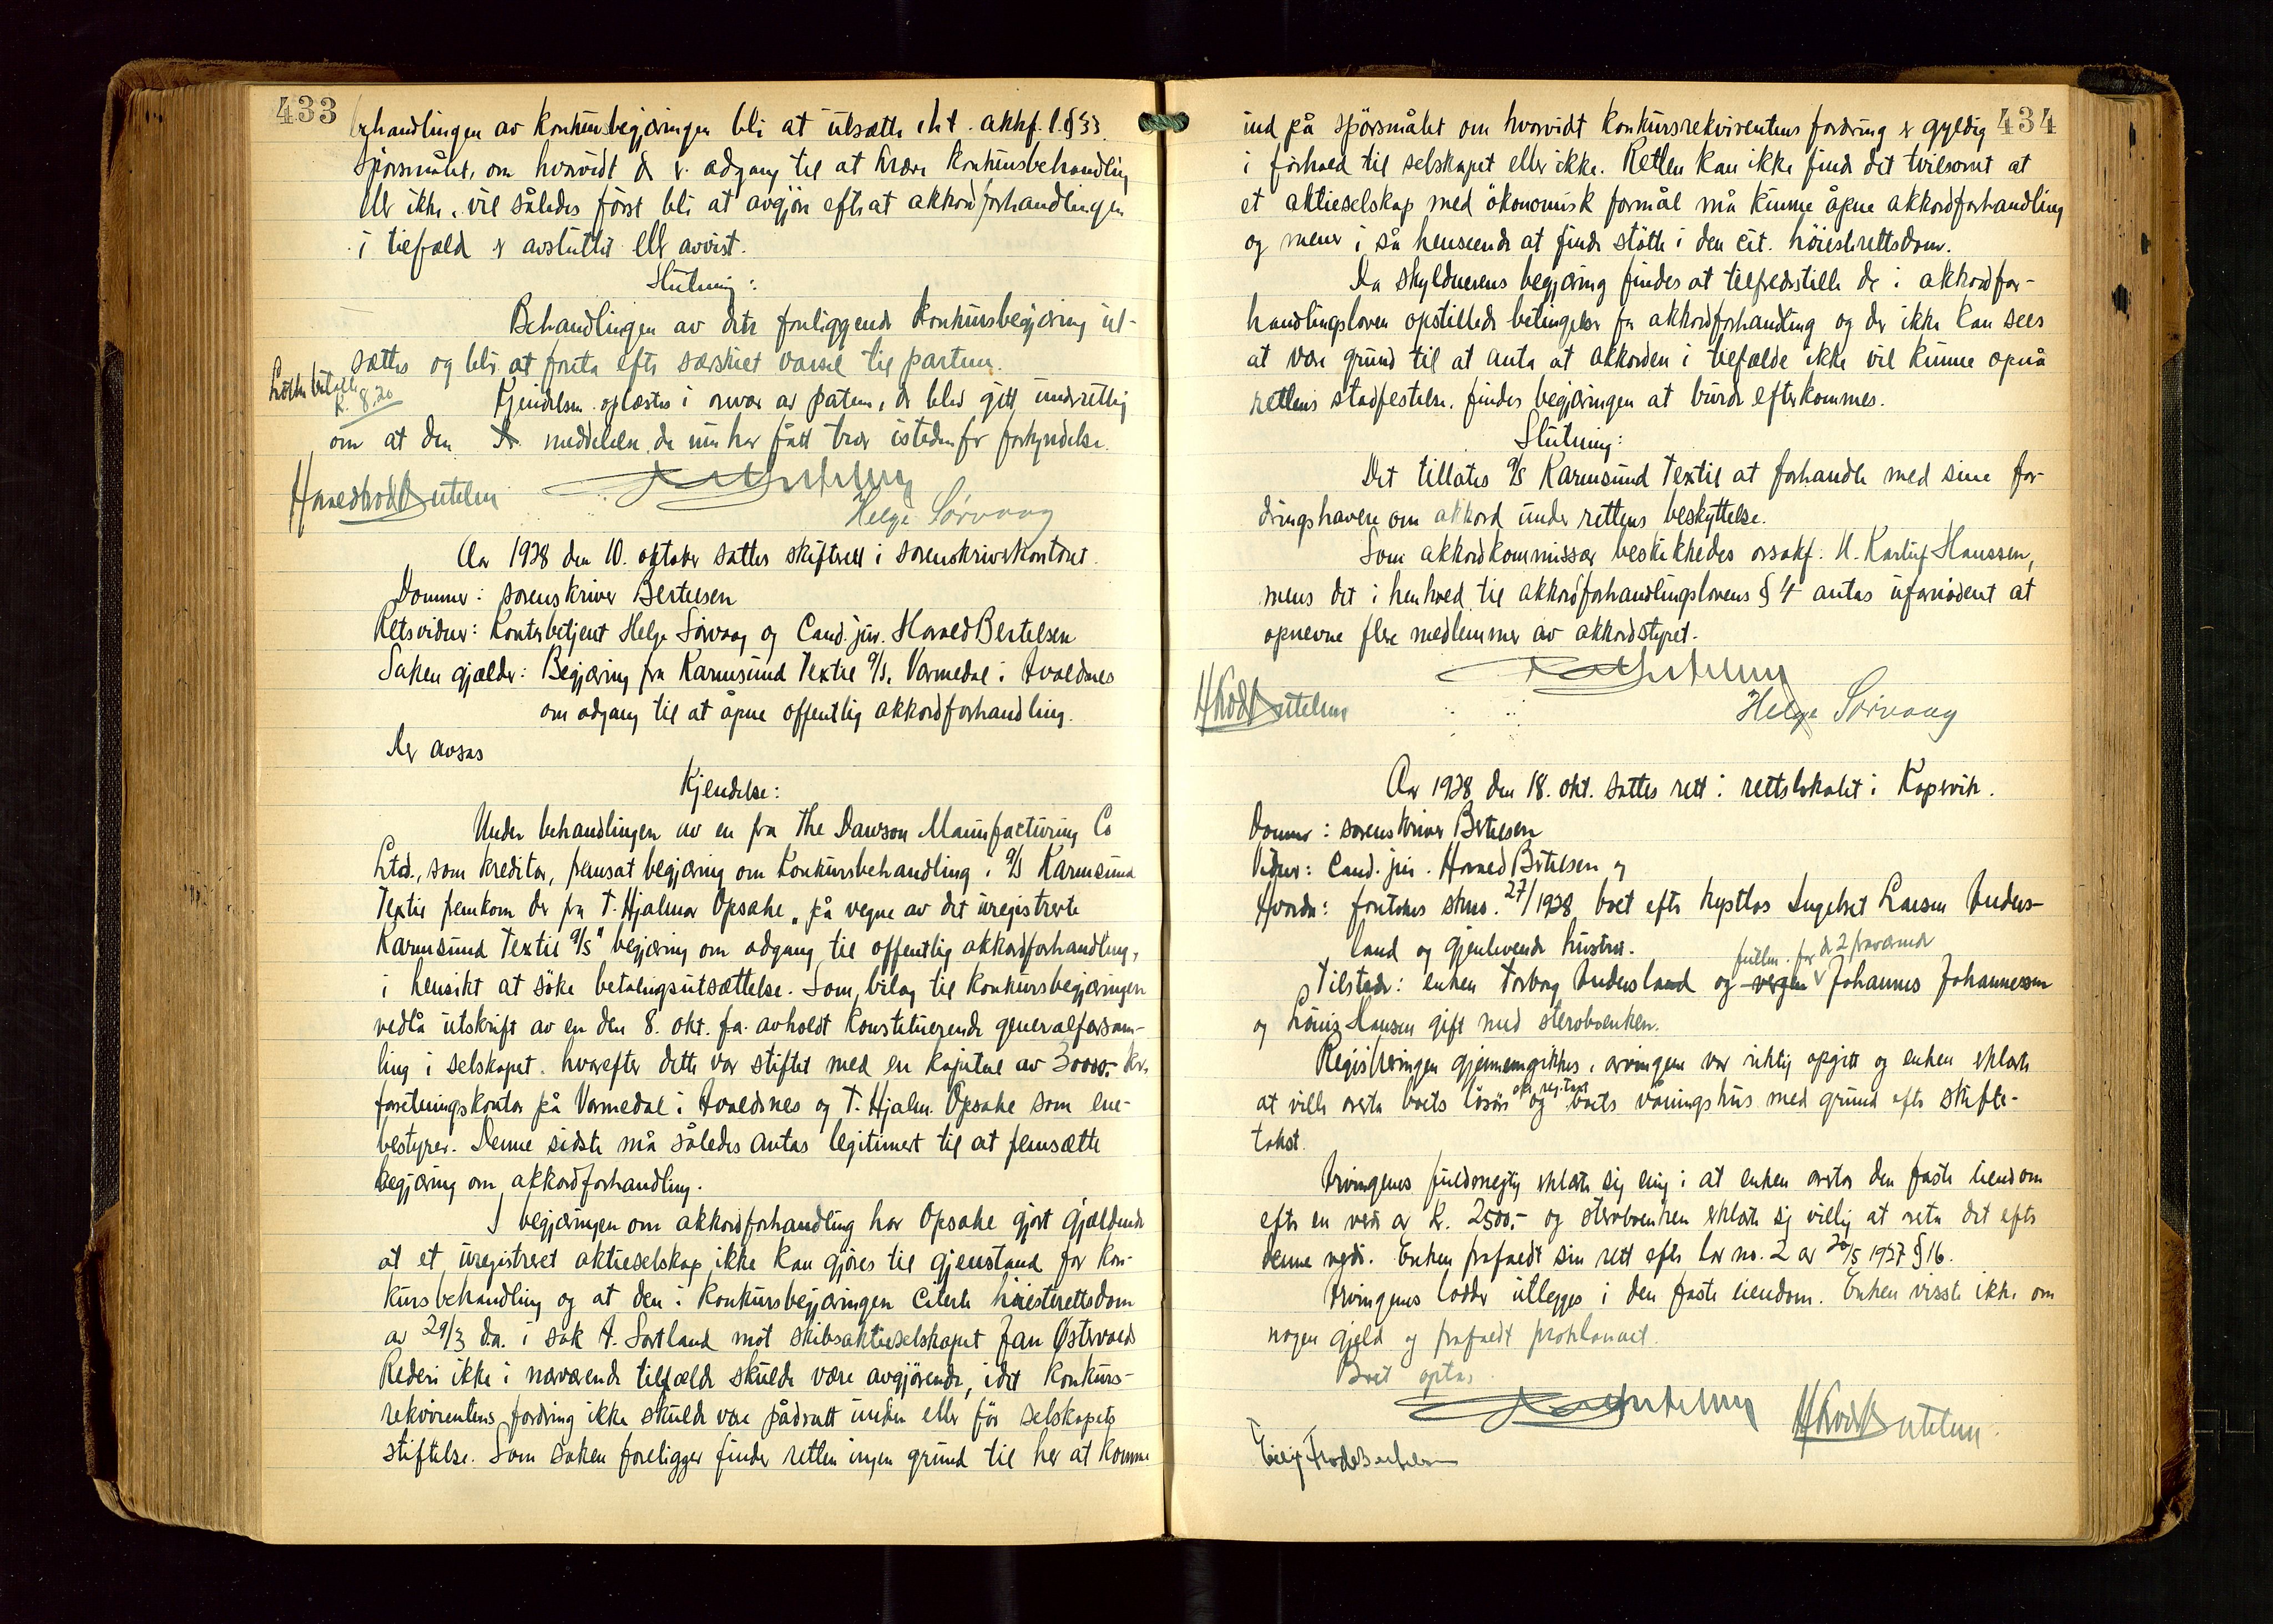 433
behandlingen av konkursbegjæringen bli at utsætte iht. akkf.l. § 33.
Spörsmålet, om hvorvidt der er adgang til at kræve konkursbehandling
eller ikke, vil således först bli at avgjöre efterat akkordforhandlingen
i tilfæld er avsluttet eller avvist.
Slutning:
Behandlingen av den foreliggende konkursbegjæring ut-
sættes og blir at foreta efter særskilt varsel til partene.
betalt
k. 8.20
Kjendelsen oplæstes i nærvær av parten, der blev gitt underretning
om at den meddelelse de nu har fått trær istedenfor forkyndelse.
Helge Sörvaag
Aar 1938 den 10. oktober sattes skifterett i sorenskriverkontoret.
Dommer: sorenskriver Bertelsen
Retsvidner: Kontorbetjent Helge Sörvaag og Cand. jur. Harald Bertelsen
Saken gjælder: Begjæring fra Karmsund Textil a/s, Vormedal i Avaldsnes
om adgang til at åpne offentlig akkordforhandling.
Der avsas
Kjendelse:
Under behandlingen av en fra The Dawson Manufacturing Co
Ltd., som kreditor, fremsat begjæring om konkursbehandling i a/s Karmsund
Textil fremkom der fra T. Hjalmar Opsahe „på vegne av det uregistrerte
Karmsund Textil a/s" begjæring om adgang til offentlig akkordforhandling,
i hensikt at söke betalingsutsættelse. Som bilag til konkursbegjæringen
vedlå utskrift av en den 8. okt. f.a. avholdt konstituerende generalforsam-
ling i selskapet. hvorefter dette var stiftet med en kapital av 30000,- kr.
forretningskontor på Vormedal i Avaldsnes og T. Hjalm. Opsahe som ene-
bestyrer. Denne sidste må således antas legitimert til at fremsætte
begjæring om akkordforhandling.
I begjæringen om akkordforhandling har Opsahe gjort gjældende
at et uregistreret aktieselskap ikke kan gjöres til gjenstand for kon-
kursbehandling og at den i konkursbegjæringen citerte höiesterettsdom
av 29/3 d.a. i sak A. Sortland mot skibsaktieselskapet Jan Östervolds
Rederi ikke i nærværende tilfælde skulde være avgjörende, idet konkurs-
rekvirentens fordring ikke skulde være pådratt under eller för selskapets
stiftelse. Som saken foreligger finder retten ingen grund til her at komme
434
ind på spörsmålet om hvorvidt konkursrekvirentens fordring er gyldig
i forhold til selskapet eller ikke. Retten kan ikke finde det tvilsomt at
et aktieselskap med ökonomisk formål må kunne åpne akkordforhandling
og mener i så henseende at finde stötte i den cit. höiesterettsdom.
Da skyldnerens begjæring findes at tilfredsstille de i akkordfor-
handlingsloven opstillede betingelser for akkordforhandling og der ikke kan sees
at være grund til at anta at akkorden i tilfælde ikke vil kunne opnå
rettens stadfestelse, findes begjæringen at burde efterkommes.
Slutning:
Det tillates a/s Karmsund Textil at forhandle med sine for-
dringshavere om akkord under rettens beskyttelse.
Som akkordkommissær beskikkedes orsakf. N. Karluf Hanssen,
mens det i henhold til akkordforhandlingslovens § 4 antas ufornödent at
opnevne flere medlemmer av akkordstyret.
Helge Sörvaag
Aar 1938 den 18. okt. sattes rett i rettslokalet i Kopervik.
Dommer: sorenskriver Bertelsen
Vidner: Cand. jur. Harald Bertelsen og
Hvorda: foretokes skno. 27/1938, boet efter Ingebret Larsen Anders-
land og gjenlevende hustru.
fullm. for de 2 fraværende
Tilstede: enken Torborg Andersland og vergen Johannes Johannessen
og Louis Hansen gift med sterboenken.
Registreringen gjennemgikkes, arvingene var riktig opgitt og enken erklærte
eft. reg. takst
at ville overta boets lösöre og boets våningshus med grund efter skifte-
takst.
Arvingenes fuldmegtig erklærte sig enig i at enken overtar den faste eiendom
efter en verdi av kr. 2500,- og sterboenken erklærte sig villig at overta det efter
denne verdi. Enken frafaldt sin rett efter lov no. 2 av 20/5 1937 § 16.
Arvingenes lodder utlegges i den faste eiendom. Enken visste ikke om
nogen gjeld og frafaldt proklamaet.
Boet optas.